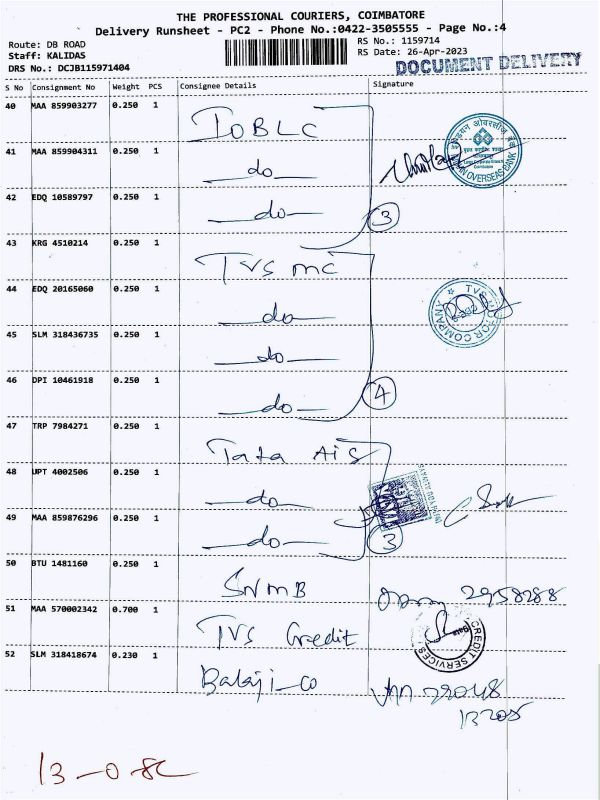 THE PROFESSIONAL COURIERS, COIMBATORE
Delivery Runsheet - PC2 - Phone No.:0422-3505555 - Page No.:4
Route: DB ROAD
Staff: KALIDAS
DRS No.: DCJB115971404
RS No.: 1159714
RS Date: 26-Apr-2023
DOCUMENT DELIVERY
S No Consignment No Weight PCS Consignee Details Signature
40 MAA 859903277 0.250 1 IOBLC
41 MAA 859904311 0.250 1 do
42 EDQ 10589797 0.250 1 do
3
43 KRG 4510214 0.250 1 TVS MC
44 EDQ 20165060 0.250 1 do
45 SLM 318436735 0.250 1 do
46 DPI 10461918 0.250 1 do
4
47 TRP 7984271 0.250 1 Tata AiS
48 UPT 4002506 0.250 1 do
49 MAA 859876296 0.250 1 do
3
50 BTU 1481160 0.250 1 SNMB 2958288
51 MAA 570002342 0.700 1 TVS Credit
CREDIT SERVICES
52 SLM 318418674 0.230 1 Balaji Co
13205
13